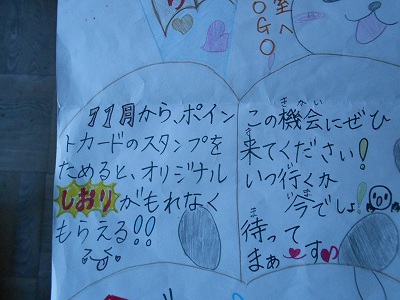 室へ
GOGO
11月から、ポイン
トカードのスタンプを
ためると、オリジナル
しおりがもれなく
もらえる!!
この機会にぜひ
きかい
来てください!
いつ行くか
今でしょ!
待って
まぁ♥す♥